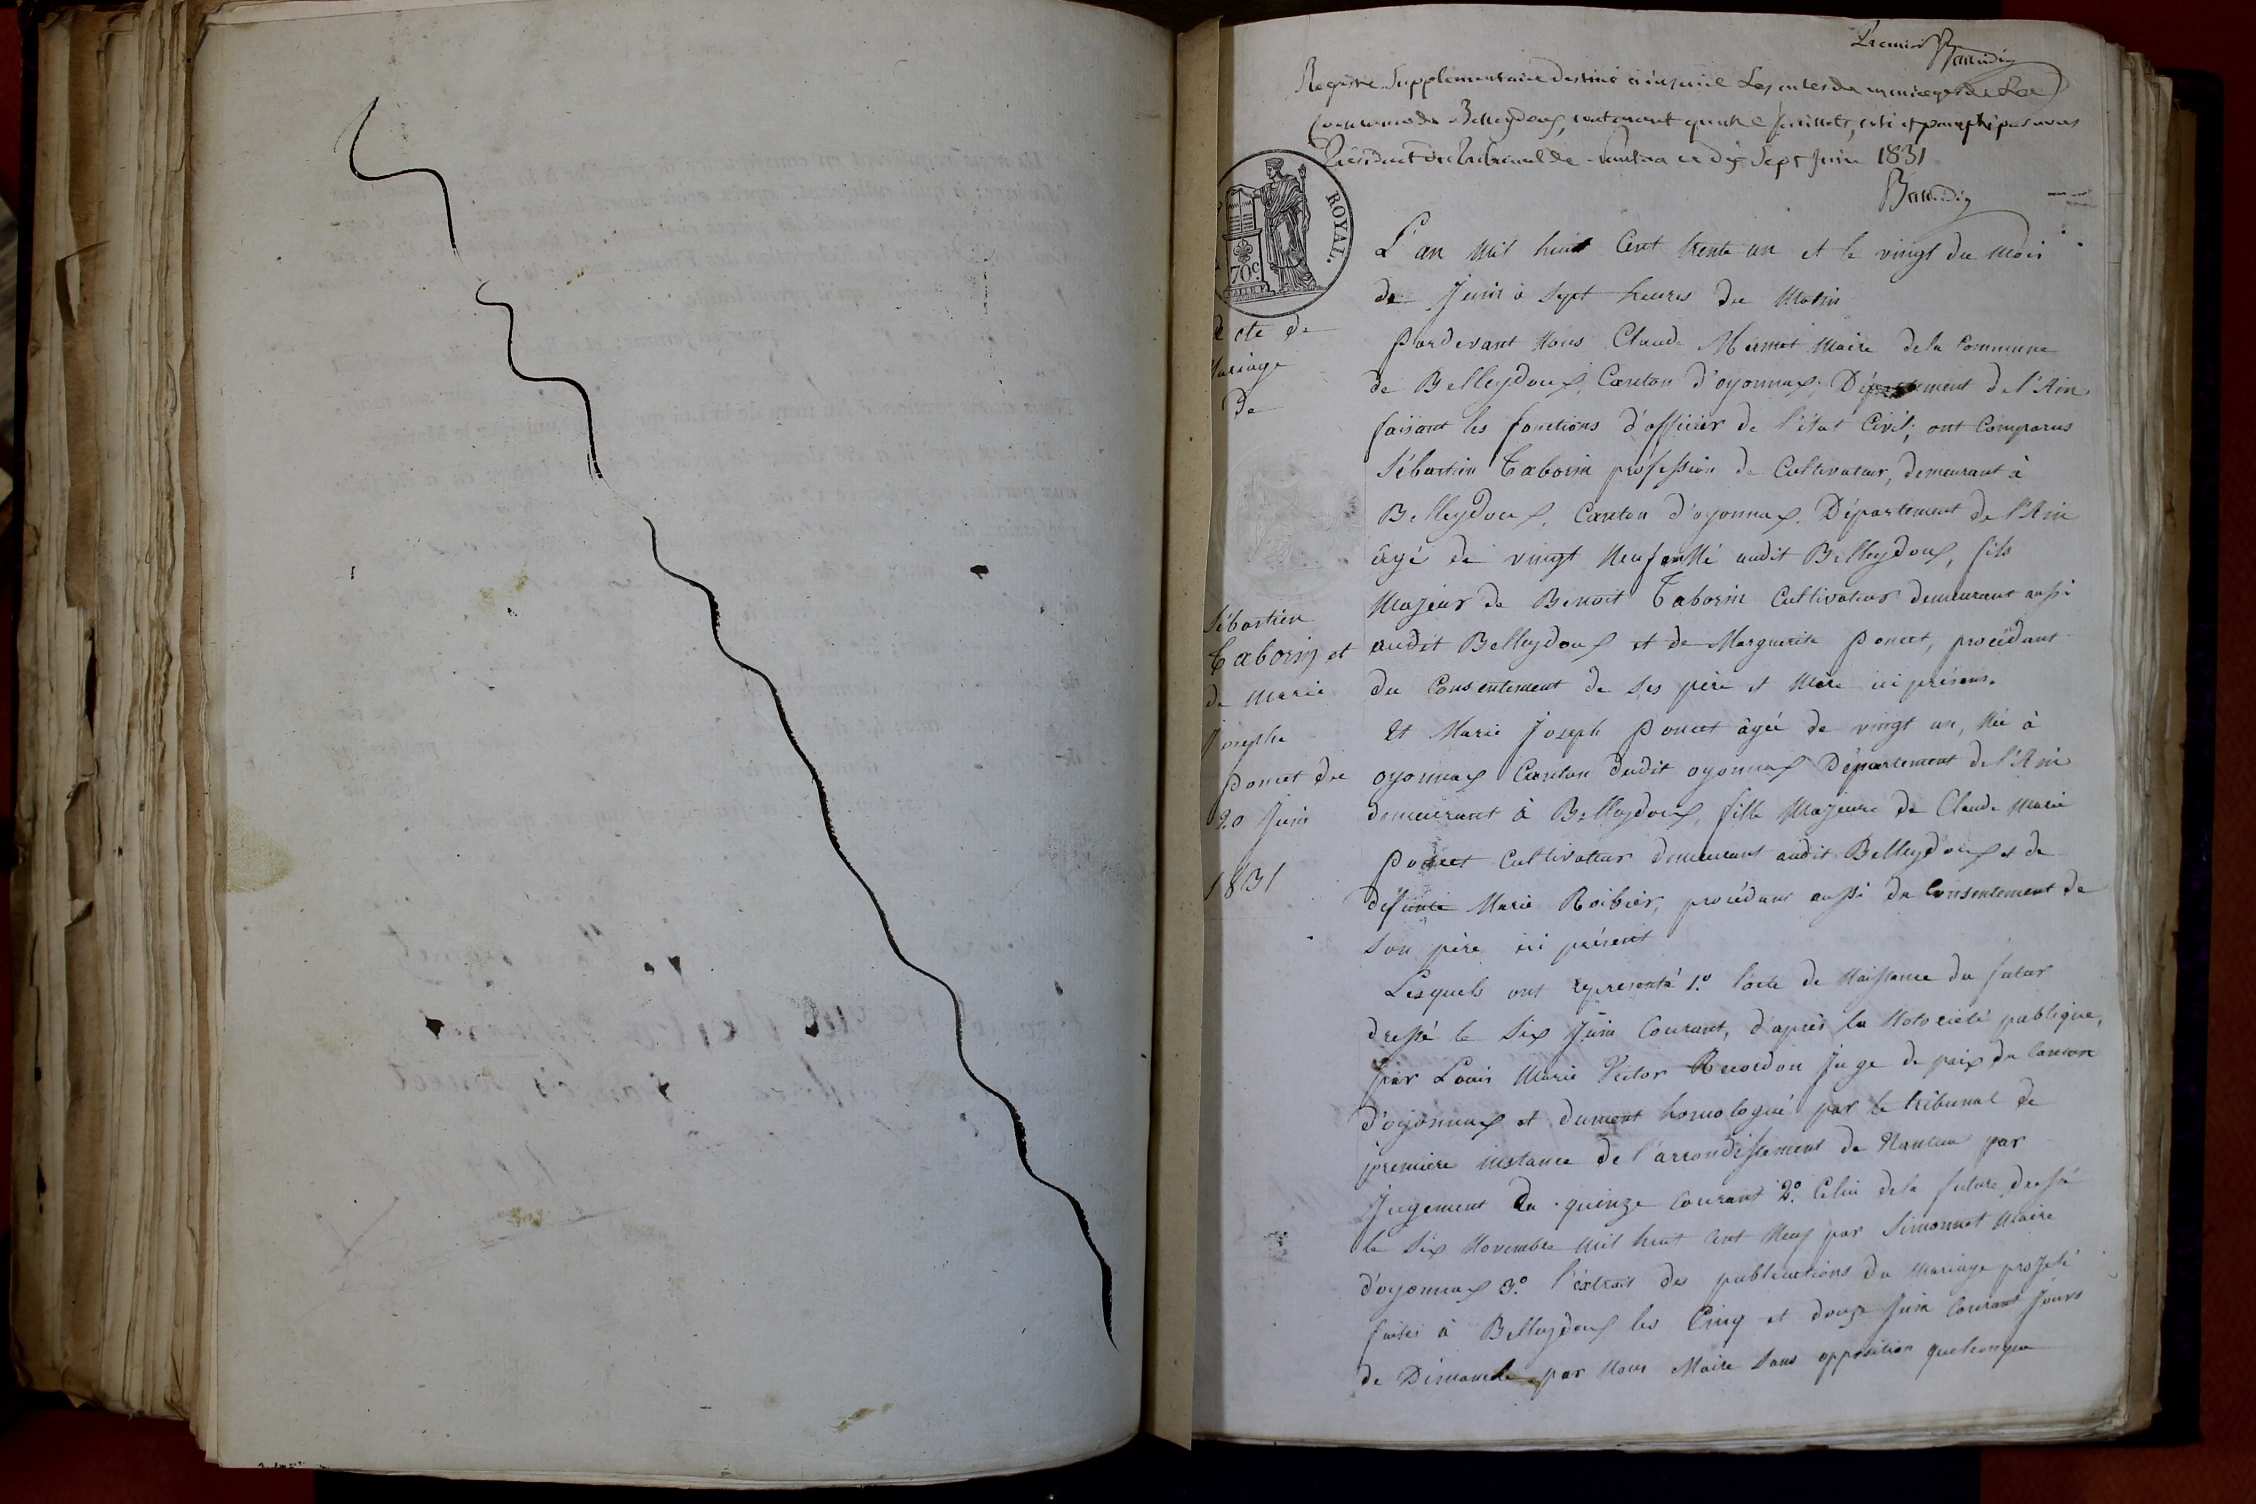 Premier Baudin
Registre Supplémentaire destiné à inscrire Les actes de mariages de La
Commune de Belleydoux, contenant quatre feuillets, coté et paraphé par nous
Président du Tribunal de Nantua ce dix Sept Juin 1831
Baudin
ROYAL.
70c.
L'an Mil huit Cent trente un et le vingt du Mois
de Juin à Sept heures du Matin
Pardevant Nous Claude Mermet Maire de la Commune
de Belleydoux, Canton d'oyonnax, Département de l'Ain
faisant les fonctions d'officier de l'état Civil, ont Comparus
Sébastien Taborin profession de Cultivateur, demeurant à
Belleydoux, Canton d'oyonnax, Département de l'Ain
âgé de vingt Neuf Né audit Belleydoux, fils
Majeur de Benoit Taborin Cultivateur demeurant aussi
audit Belleydoux et de Marguerite Poncet, procédant
du Consentement de Ses père et Mère ici présens.
Et Marie Joseph Poncet âgée de vingt un, Née à
oyonnax Canton dudit oyonnax Département de l'Ain
demeurant à Belleydoux, fille Majeure de Claude Marie
Poncet Cultivateur demeurant audit Belleydoux et de
défunte Marie Roibier, procédant aussi du Consentement de
Son père ici présent
Lesquels ont représenté 1.º l'acte de Naissance du futur
dressé le Six Juin Courant, d'après la Notoriété publique,
par Louis Marie Victor Recordon Juge de paix du Canton
d'oyonnax et dument homologué par le tribunal de
première instance de l'arrondissement de Nantua par
Jugement du quinze Courant 2.º Celui de la future dressé
le Six Novembre Mil huit Cent Neuf par Simonnet Maire
d'oyonnax 3.º l'extrait des publications du Mariage projeté
faites à Belleydoux les Cinq et douze Juin Courant Jours
de Dimanche par Nous Maire Sans opposition quelconque
Acte de
Mariage
de
Sébastien
Taborin et
de Marie
Josephe
Poncet du
20 Juin
1831